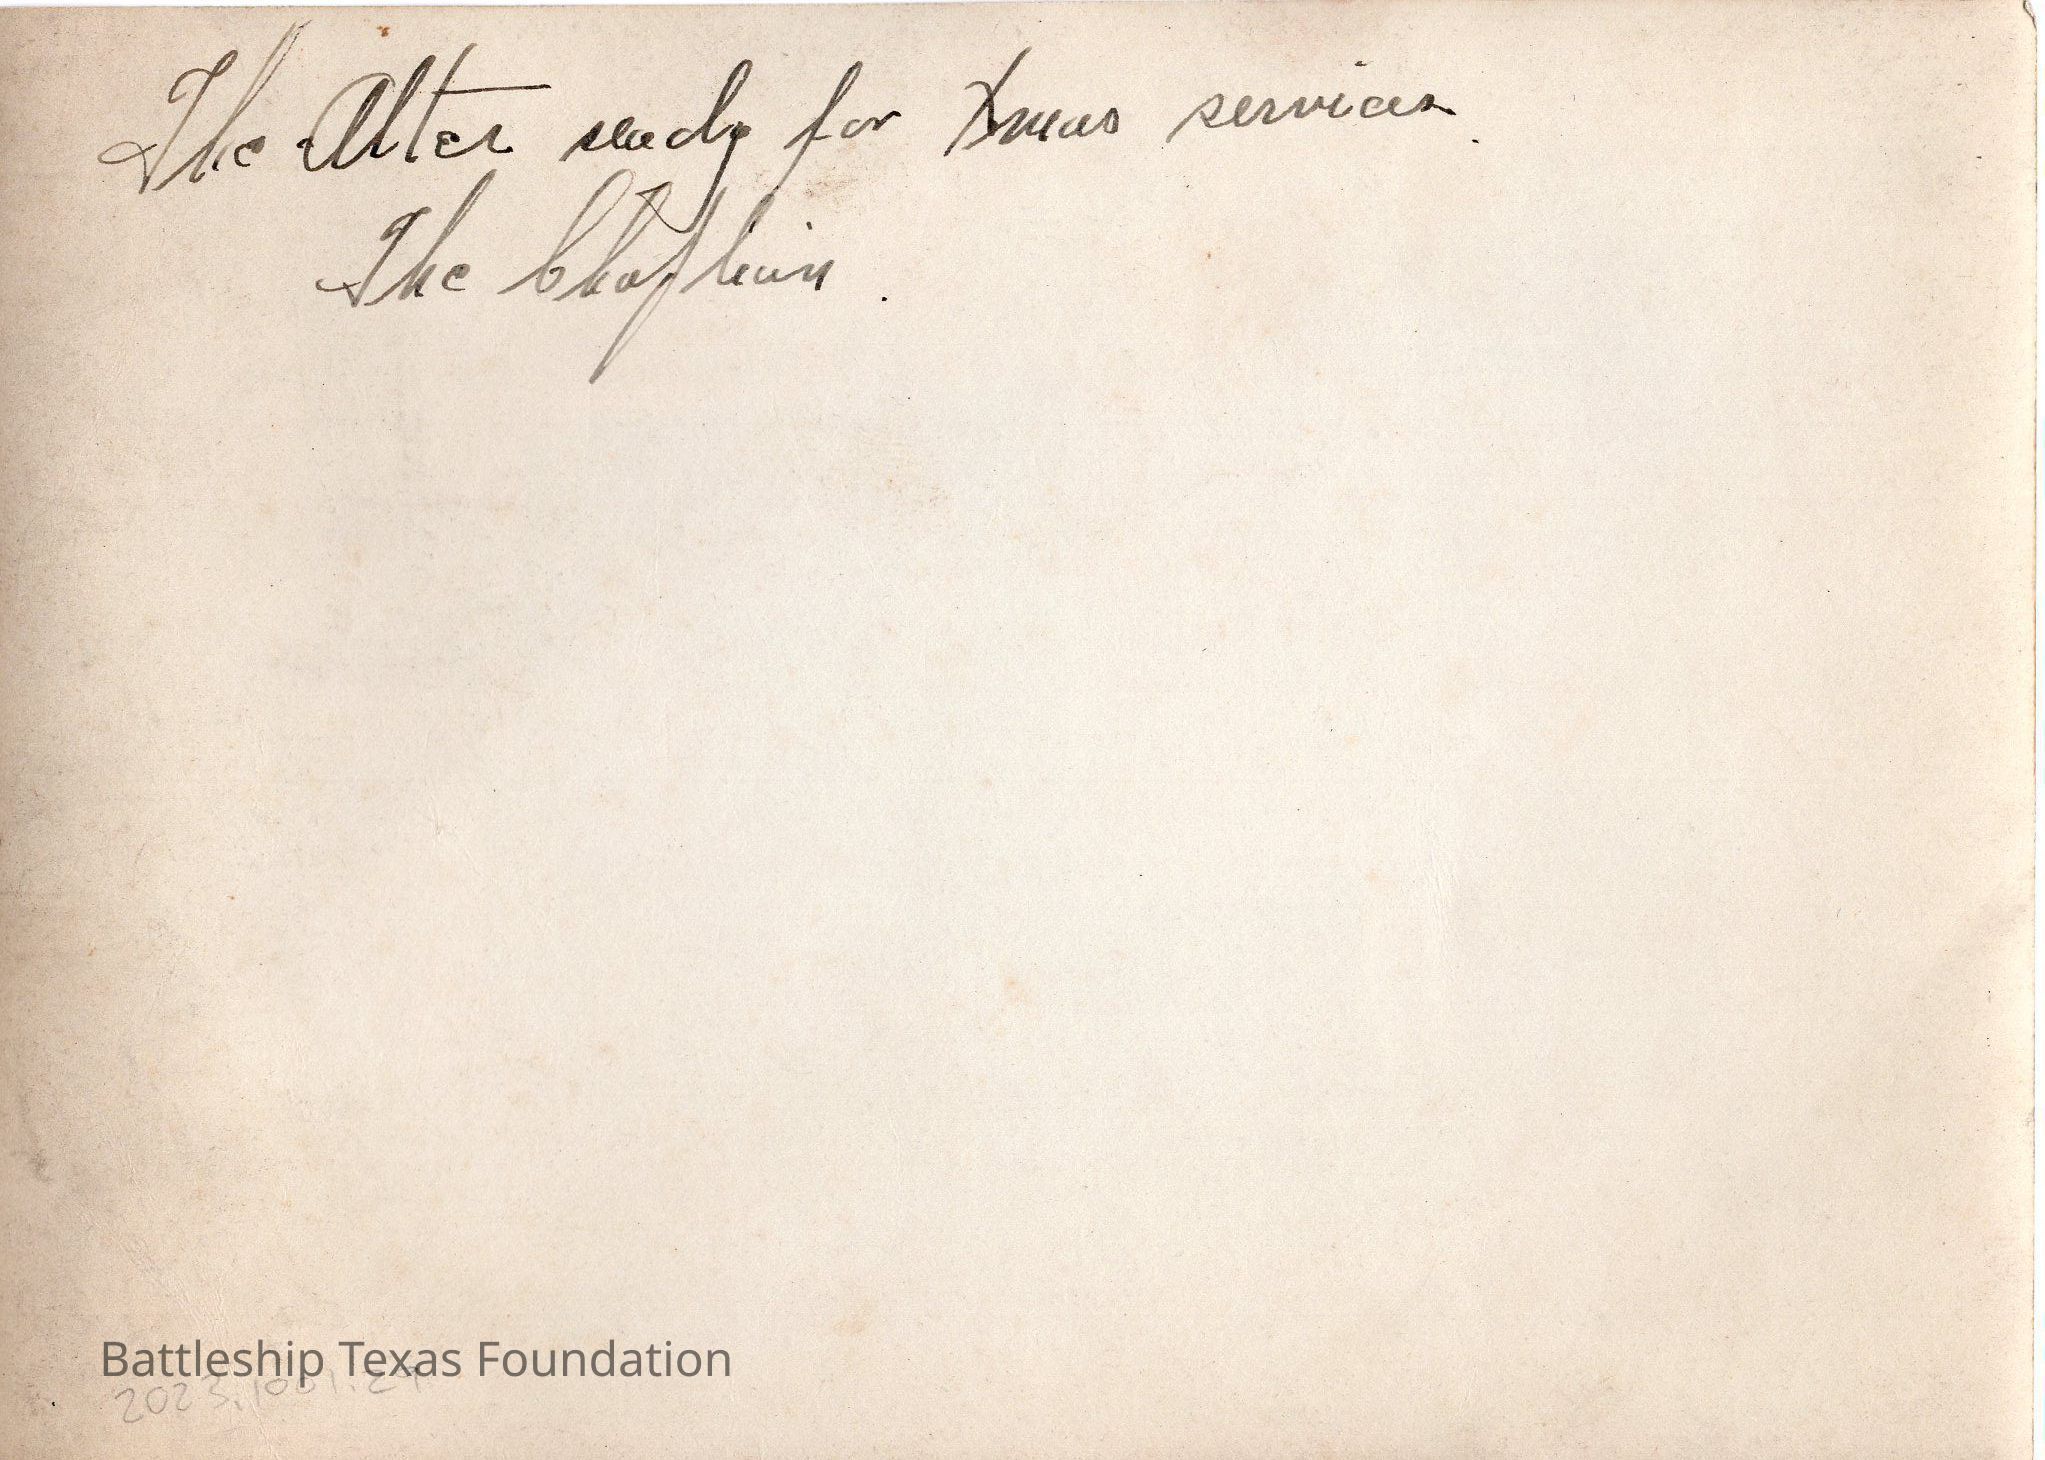 The Alter ready for Xmas services.
The Chaplain.
Battleship Texas Foundation
2023.1001.29